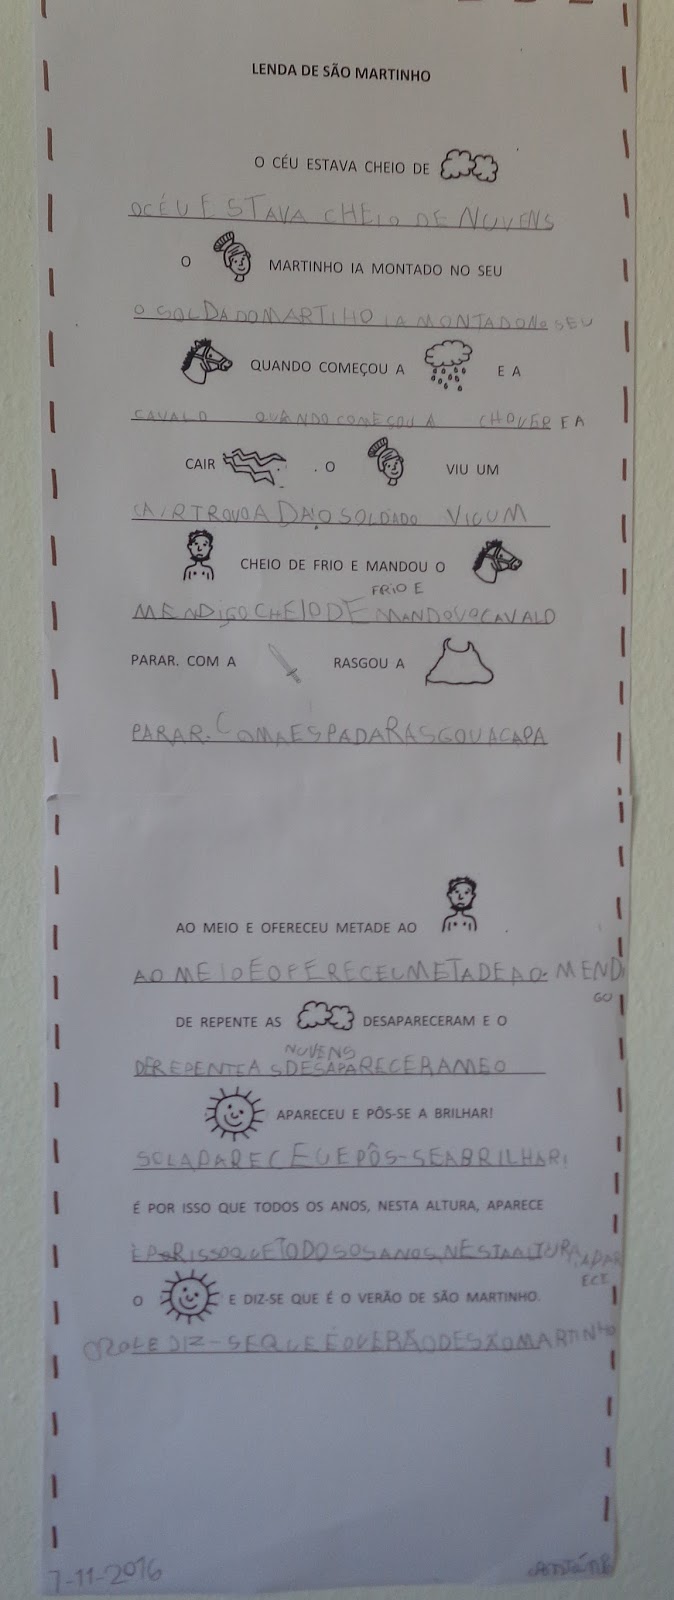 LENDA DE SÃO MARTINHO
O CÉU ESTAVA CHEIO DE
O CÉU ESTAVA CHEIO DE NUVENS
O MARTINHO IA MONTADO NO SEU
O SOLDADO MARTIHO IA MONTADO NO SEU
QUANDO COMEÇOU A E A
CAVALO QUANDO COMEÇOU A CHOVER E A
CAIR . O VIU UM
CAIR TROVOADA O SOLDADO VIU UM
CHEIO DE FRIO E MANDOU O
FRIO E
MENDIGO CHEIO DE MANDOU O CAVALO
PARAR. COM A RASGOU A
PARAR. COM A ESPADA RASGOU A CAPA
AO MEIO E OFERECEU METADE AO .
AO MEIO E OFERECEU METADE AO MENDI
GO
DE REPENTE AS DESAPARECERAM E O
NUVENS
DE REPENTE AS DESAPARECERAM E O
APARECEU E PÔS-SE A BRILHAR!
SOL APARECEU E PÔS-SE A BRILHAR!
É POR ISSO QUE TODOS OS ANOS, NESTA ALTURA, APARECE
É POR ISSO QUE TODOS OS ANOS, NESTA ALTURA, APAR
ECE
O E DIZ-SE QUE É O VERÃO DE SÃO MARTINHO.
O SOL E DIZ-SE QUE É O VERÃO DE SÃO MARTINHO
7-11-2016